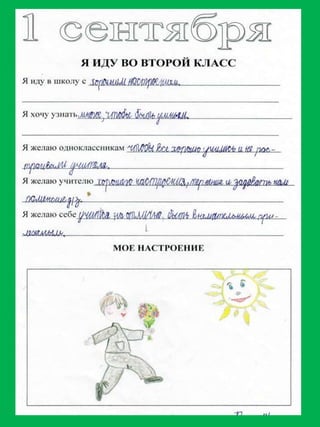 1 сентября
Я ИДУ ВО ВТОРОЙ КЛАСС
Я иду в школу с хорошим настроением.
Я хочу узнать много, чтобы быть умным.
Я желаю одноклассникам чтобы все хорошо учились и не рас-
траивали учителя.
Я желаю учителю хорошего настроения, терпения и задавать нам
поменьше д/з.
Я желаю себе учится на отлично, быть внимательным, при-
лежным.
МОЕ НАСТРОЕНИЕ